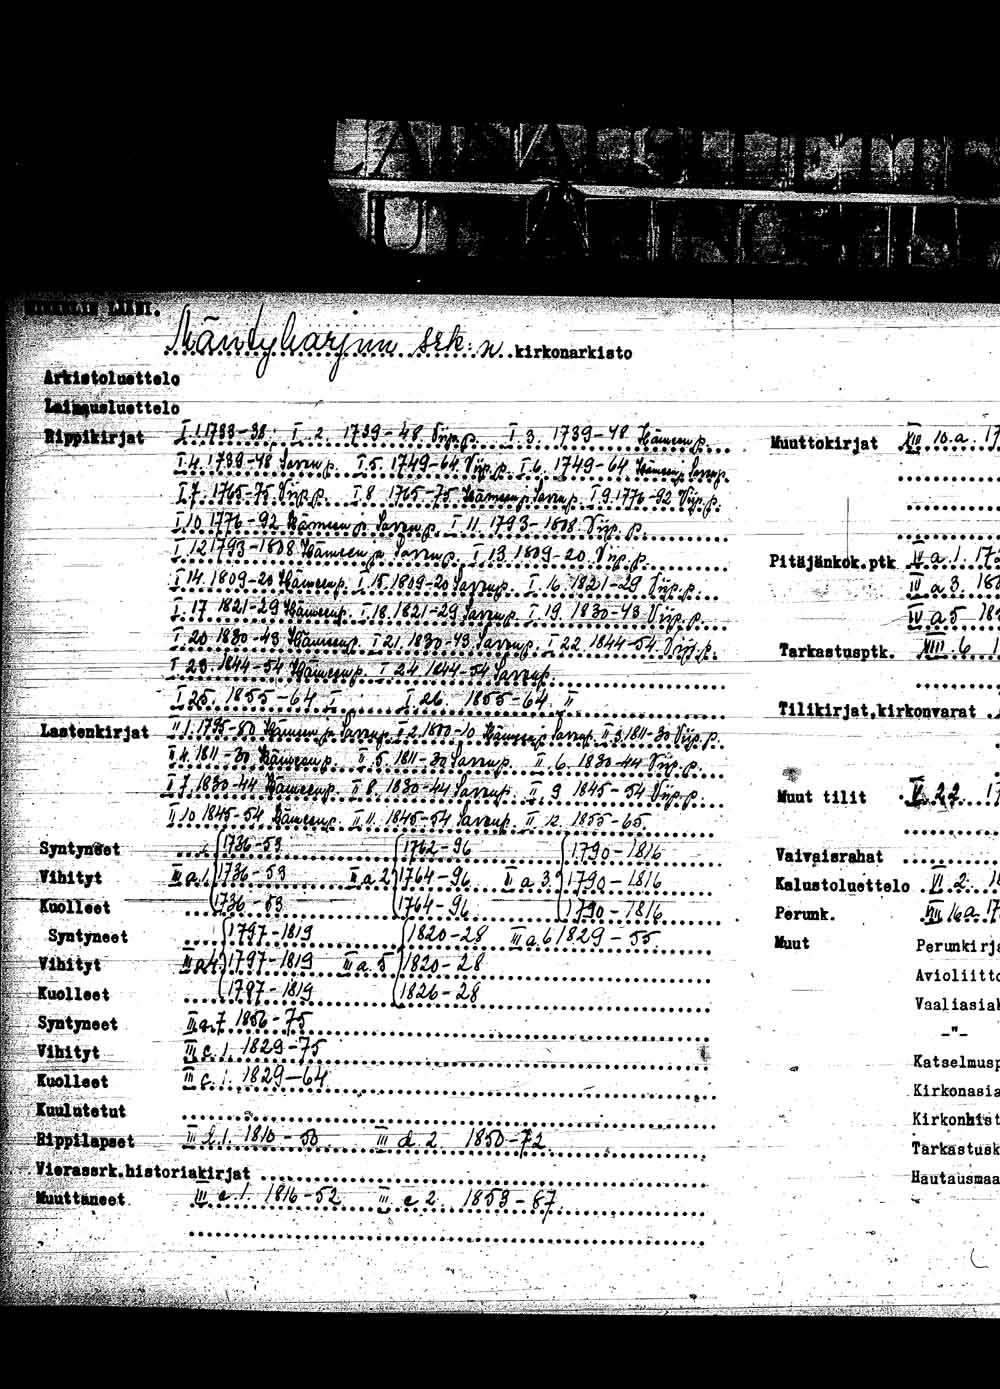 MIKKELIN LÄÄNI.
Mäntyharjun srk:n kirkonarkisto
Arkistoluettelo
Lainausluettelo
Rippikirjat I 1. 1733-38; I. 2. 1739-48 Viip.p. I 3. 1739-48 Hämeen p.
I 4. 1739-48 Savon p. I 5. 1749-64 Viip.p. I 6. 1749-64 Hämeen p. Savon p.
I 7. 1765-75 Viip.p. I 8 1765-75 Hämeen p. Savon p. I 9. 1776-92 Viip.p.
I 10 1776-92 Hämeen p. Savon p. I 11. 1793-1808 Viip. p.
I 12 1793-1808 Hämeen p. Savon p. I 13 1809-20 Viip.p.
I 14. 1809-20 Hämeen p. I 15 1809-20 Savon p. I. 16. 1821-29 Viip.p.
I. 17 1821-29 Hämeen p. I 18. 1821-29 Savon p. I 19. 1830-43 Viip.p.
I 20 1830-43 Hämeen p. I 21. 1830-43 Savon p. I 22. 1844-54 Viip.p.
I 23. 1844-54 Hämeen p. I 24 1844-54 Savon p.
I 25. 1855-64 I I 26. 1855-64 II
Lastenkirjat II 1. 1795-80 Hämeen p. Savon p. II 2. 1800-10 Hämeen p. Savon p. II 3. 1811-30 Viip.p.
II 4. 1811-30 Hämeen p. II. 5. 1811-30 Savon p. II. 6. 1830-44 Viip.p.
II 7. 1830-44 Hämeen p. II 8. 1830-44 Savon p. II. 9 1845-54 Viip.p.
II 10 1845-54 Hämeen p. II 11. 1845-54 Savon p. II 12. 1855-65.
Syntyneet 1736-53 1762-96 1790-1816
Vihityt III a. 1. 1736-53 III a 2 1764-96 III a 3. 1790-1816
Kuolleet 1736-53 1764-96 1790-1816
Syntyneet 1797-1819 1820-28 III a 6 1829-55
Vihityt III a 4. 1797-1819 III a. 5 1820-28
Kuolleet 1797-1819 1826-28
Syntyneet III a. 7 1856-75
Vihityt III c. 1. 1829-75
Kuolleet III c. 1. 1829-64
Kuulutetut
Rippilapset III d. 1. 1810-50 III d. 2. 1850-72
Vierassrk.historiakirjat
Muuttaneet III e. 1. 1816-52 III. e 2. 1853-67
Muuttokirjat XIII 10.a. 17
Pitäjänkok.ptk IV a. 1. 17
IV a 3. 18
IV a 5 18
Tarkastusptk. XIII. 6 1
Tilikirjat,kirkonvarat
Muut tilit V. 22. 17
Vaivaisrahat
Kalustoluettelo VI. 2. 18
Perunk. XIII 16a. 17
Muut Perunkirja
Avioliitto
Vaaliasiak
-"-
Katselmusp
Kirkonasia
Kirkonhist
Tarkastusk
Hautausmaa